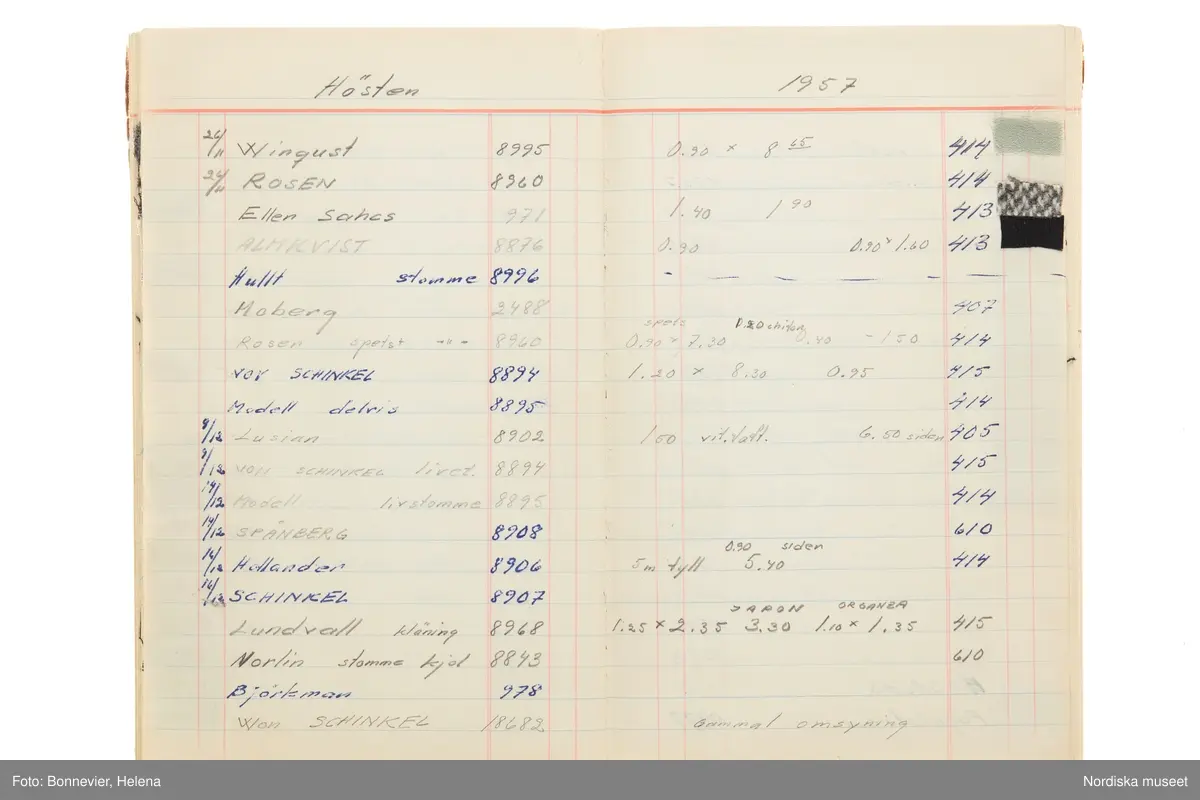 Hösten 1957
26/11 Winqust 8995 0.90 x 8 65 414
26/11 ROSEN 8960 414
Ellen Sahcs 971 1.40 1 90 413
ALMKVIST 8876 0.90 0.90 x 1.60 413
Hullt stomme 8996 - — — — - — —
Moberg 2488 407
spets 0.20 chifon
Rosen spetst -"- 8960 0.90 x 7.30 0.40 - 150 414
VOV SCHINKEL 8894 1.20 x 8.30 0.95 415
Modell delvis 8895 414
9/12 Lusian 8902 150 vit.taft. 6.50 siden 405
9/12 VON SCHINKEL livet. 8894 415
14/12 Modell livstomme 8895 414
14/12 SPÅNBERG 8908 610
0.90 siden
16/12 Hallander 8906 5m tyll 5.40 414
16/12 SCHINKEL 8907
JAPON ORGANZA
Lundvall kläning 8968 1.25 x 2.35 3.30 1.10 x 1.35 415
Norlin stomme kjol 8843 610
Björkman 978
Won SCHINKEL 18682 Gammal omsyning
Foto: Bonnevier, Helena Nordiska museet